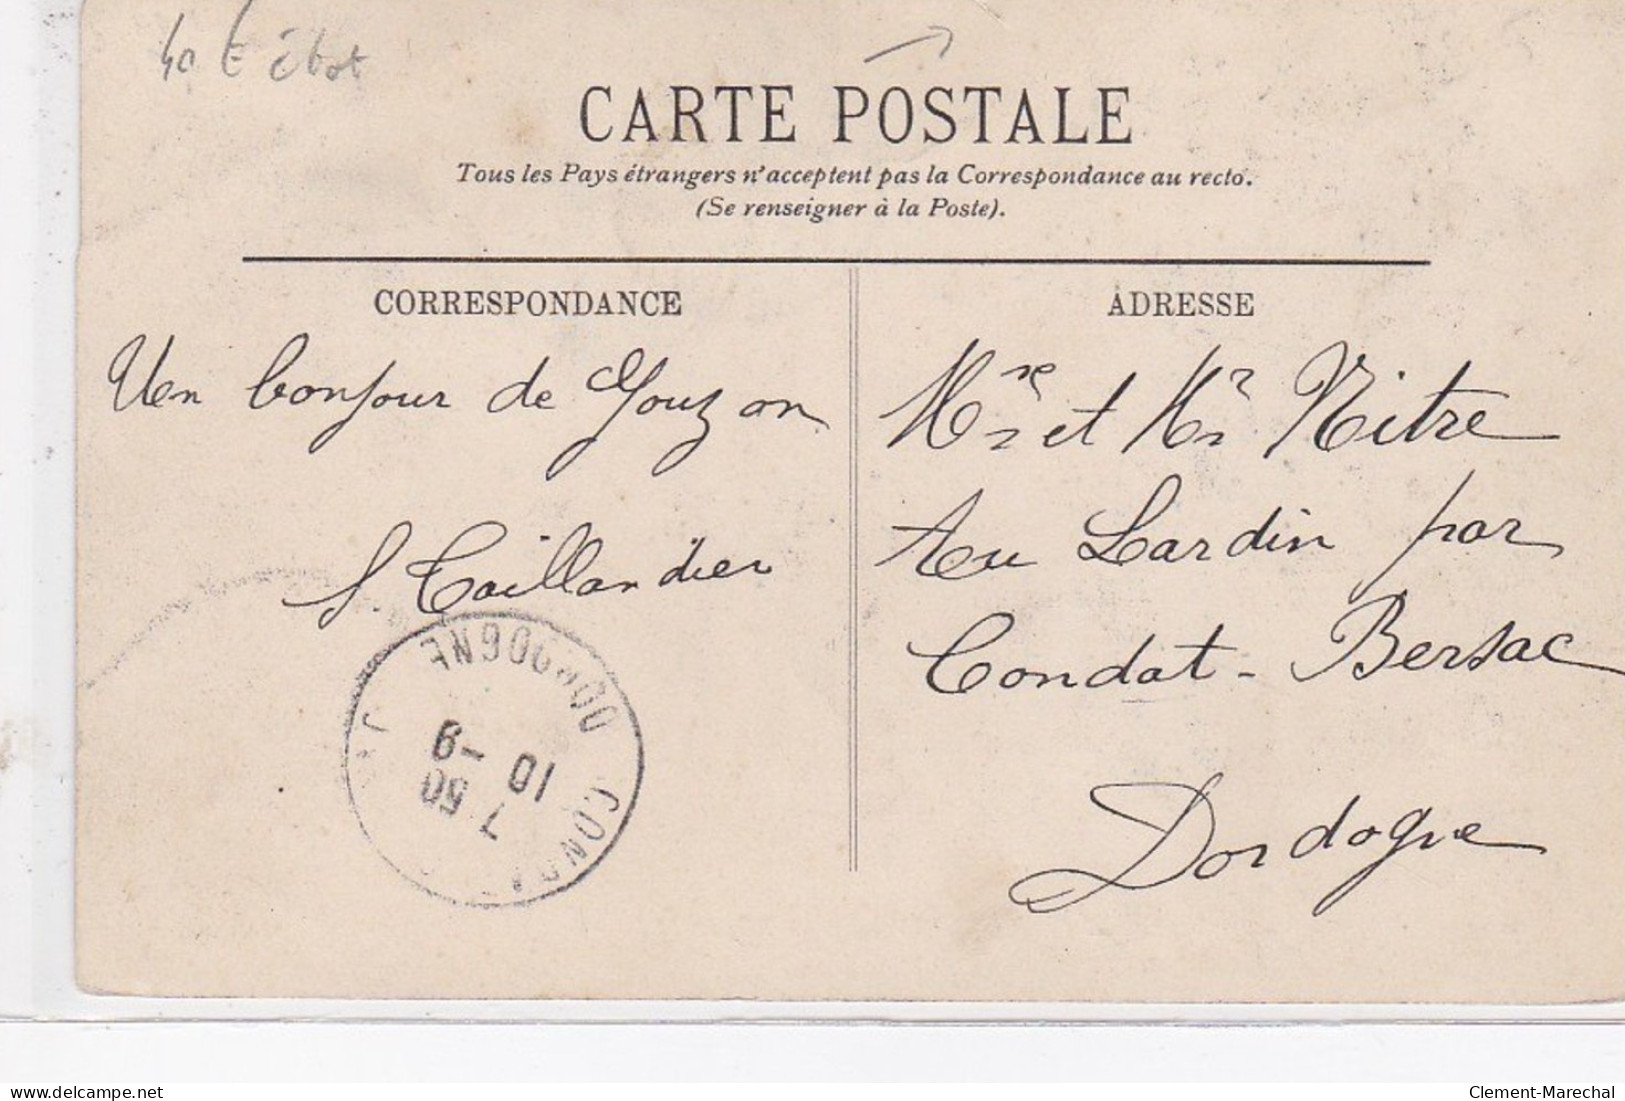 40 E
CARTE POSTALE
Tous les Pays étrangers n'acceptent pas la Correspondance au recto.
(Se renseigner à la Poste).
CORRESPONDANCE
Un bonjour de Gouzon
S. Taillandier
DORDOGNE
10 - 9
7 50
ADRESSE
Mme et Mr Nitre
Au Lardin par
Condat - Bersac
Dordogne
Clement-Marechal
delcampe.net